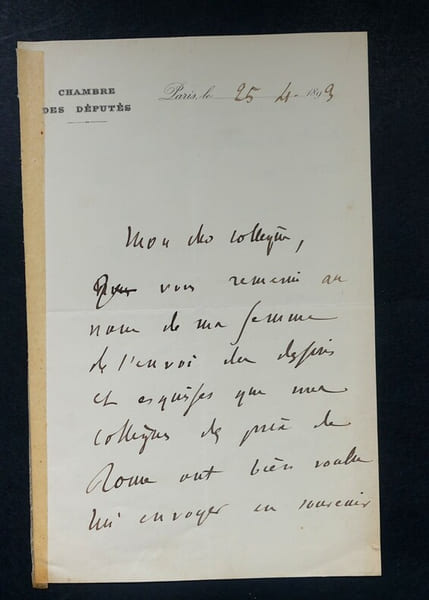 CHAMBRE
DES DÉPUTÉS
Paris, le 25 4 - 1893
Mon cher collègue,
vous remercie au
nom de ma femme
de l'envoi des dessins
et esquisses que mes
collègues du prix de
Rome ont bien voulu
lui envoyer en souvenir